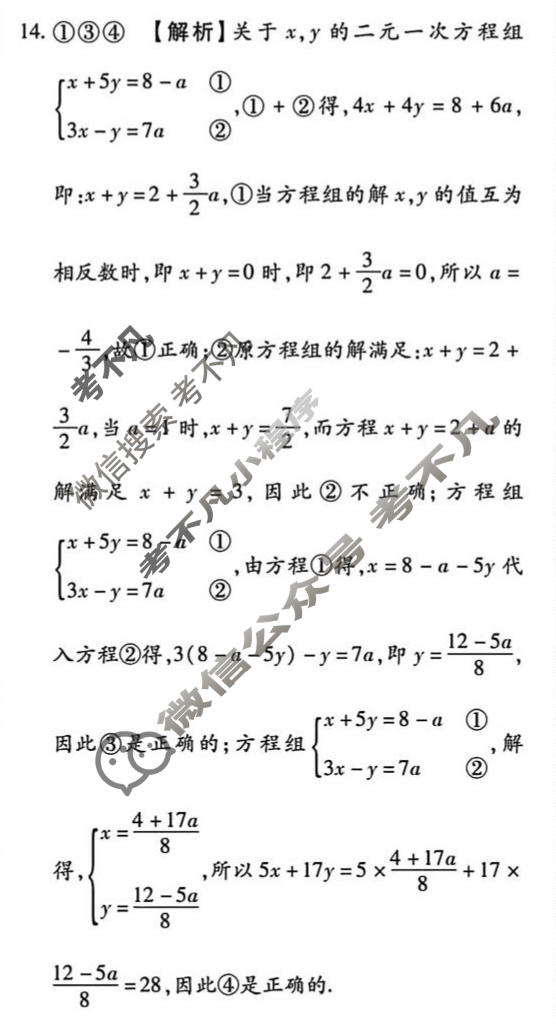 14. ①③④ 【解析】关于 x,y 的二元一次方程组
{x+5y=8-a ①
3x-y=7a ②
,①+②得,4x+4y=8+6a,
即:x+y=2+3/2a,①当方程组的解 x,y 的值互为
相反数时,即 x+y=0 时,即 2+3/2a=0,所以 a=
-4/3,故①正确;②原方程组的解满足:x+y=2+
3/2a,当 a=1 时,x+y=7/2,而方程 x+y=2+a 的
解满足 x+y=3,因此②不正确;方程组
{x+5y=8-a ①
3x-y=7a ②
,由方程①得,x=8-a-5y 代
入方程②得,3(8-a-5y)-y=7a,即 y=(12-5a)/8,
因此③是正确的;方程组{x+5y=8-a ①
3x-y=7a ②
,解
得,{x=(4+17a)/8
y=(12-5a)/8
,所以 5x+17y=5×(4+17a)/8+17×
(12-5a)/8=28,因此④是正确的.
考不凡
微信搜索 考不凡
考不凡小程序
微信公众号 考不凡